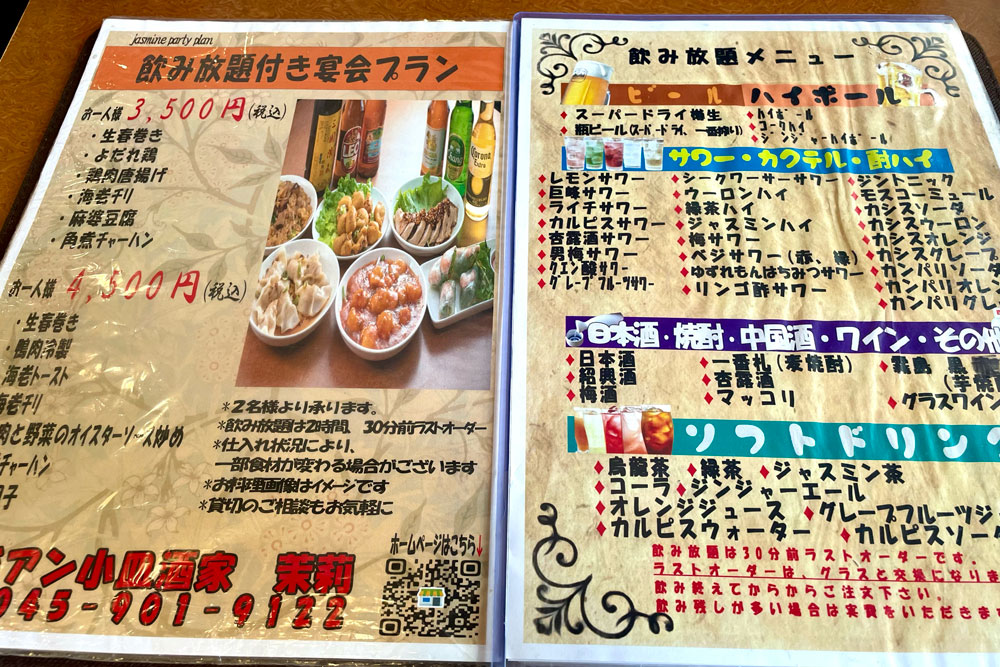 jasmine party plan
飲み放題付き宴会プラン
お一人様 3,500円(税込)
・生春巻き
・よだれ鶏
・鶏肉唐揚げ
・海老チリ
・麻婆豆腐
・角煮チャーハン
お一人様 4,500円(税込)
・生春巻き
・鴨肉冷製
海老トースト
海老チリ
肉と野菜のオイスターソース炒め
チャーハン
団子
*2名様より承ります。
*飲み放題は2時間、30分前ラストオーダー
*仕入れ状況により、
一部食材が変わる場合がございます
*お料理画像はイメージです
*貸切のご相談もお気軽に
アン小皿酒家 茉莉
045-901-9122
ホームページはこちら↓
Corona
Extra
飲み放題メニュー
ビール ハイボール
♦スーパードライ樽生
♦瓶ビール(スーパードライ、一番搾り)
♦ハイボール
♦コークハイ
♦ジンジャーハイボール
サワー・カクテル・酎ハイ
♦レモンサワー
♦巨峰サワー
♦ライチサワー
♦カルピスサワー
♦杏露酒サワー
♦男梅サワー
♦クエン酸サワー
♦グレープフルーツサワー
♦シークワーサーサワー
♦ウーロンハイ
♦緑茶ハイ
♦ジャスミンハイ
♦梅サワー
♦ベジサワー(赤、緑)
♦ゆずれもんはちみつサワー
♦リンゴ酢サワー
♦ジントニック
♦モスコーミュール
♦カシスソーダ
♦カシスウーロン
♦カシスオレンジ
♦カシスグレープ
♦カンパリソーダ
♦カンパリオレン
♦カンパリグレ
日本酒・焼酎・中国酒・ワイン・その他
♦日本酒
♦紹興酒
♦梅酒
♦一番札(麦焼酎)
♦杏露酒
♦マッコリ
♦霧島 黒
(芋焼
♦グラスワイン
ソフトドリンク
♦烏龍茶 ♦緑茶 ♦ジャスミン茶
♦コーラ ♦ジンジャーエール
♦オレンジジュース ♦グレープフルーツジ
♦カルピスウォーター ♦カルピスソー
飲み放題は30分前ラストオーダーです。
ラストオーダーは、グラスと交換になりま
飲み終えてからご注文下さい。
飲み残しが多い場合は実費をいただきま